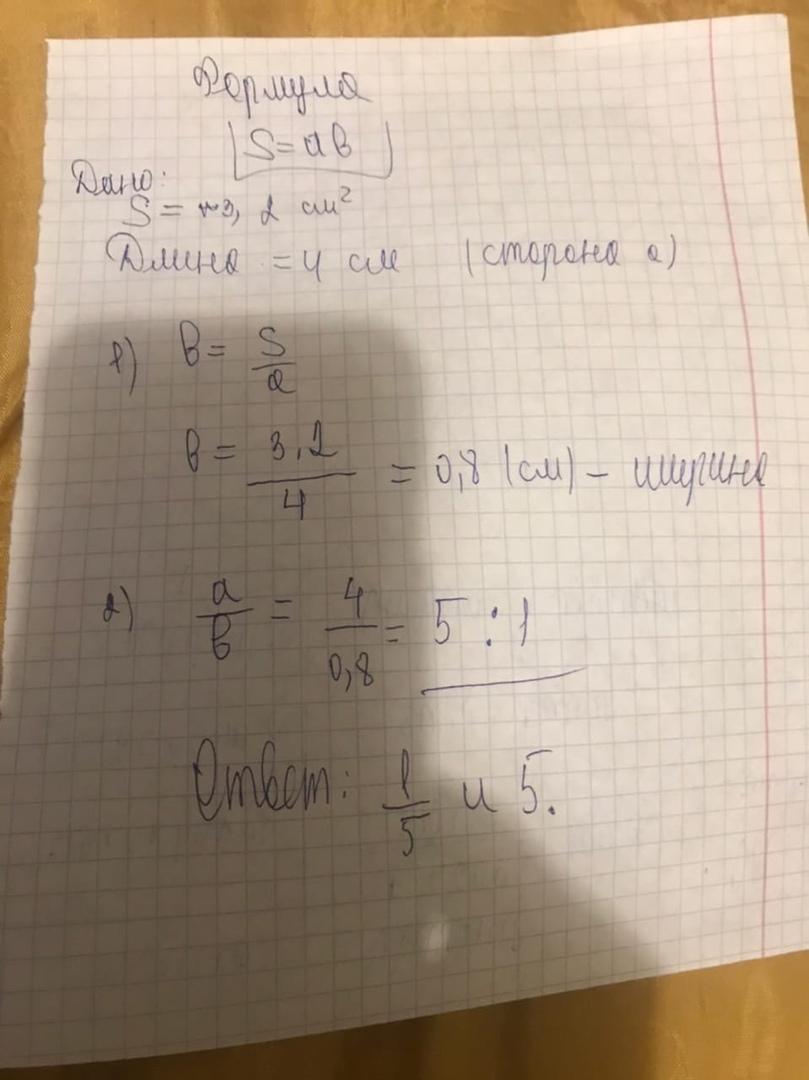 Формула
S = ab
Дано:
S = 3,2 см²
Длина = 4 см (сторона a)
1) b = S/a
b = 3,2/4 = 0,8 (см) – ширина
2) a/b = 4/0,8 = 5 : 1
Ответ: 1/5 и 5.